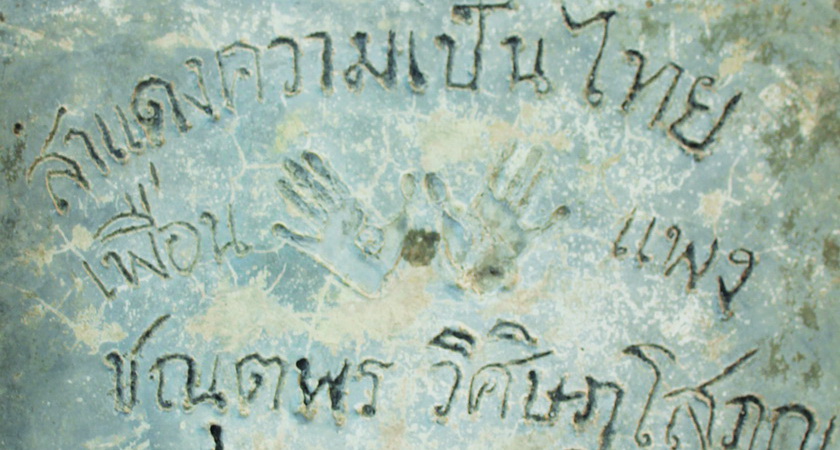 สำแดงความเป็นไทย
เพื่อน แพง
ชณุตพร วิศิษฎโสภณ